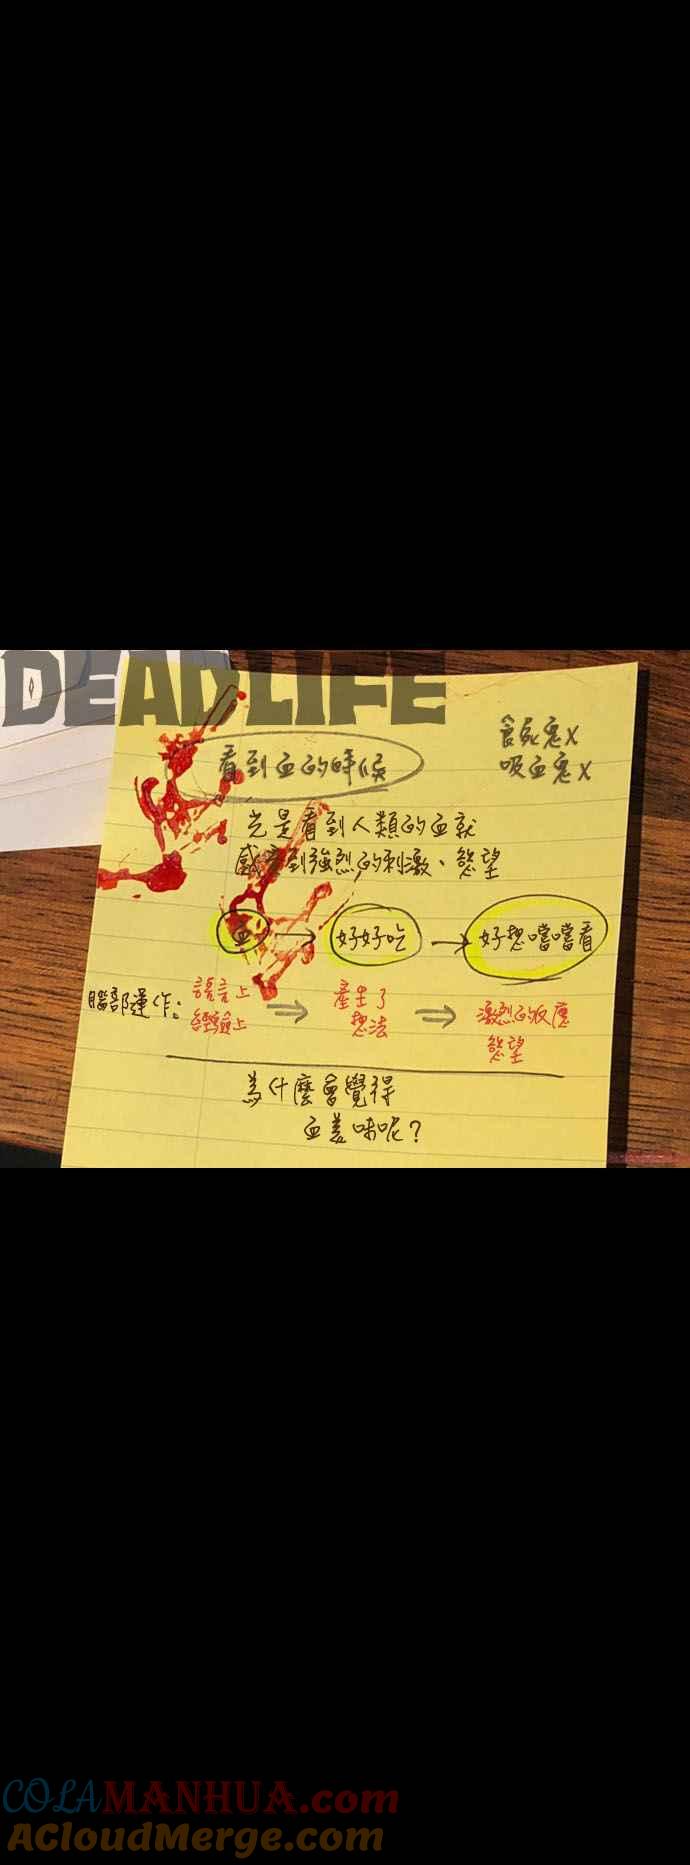 DEADLIFE
看到血的時候
食屍鬼X
吸血鬼X
光是看到人類的血就
感受到強烈的刺激、慾望
血 → 好好吃 → 好想嚐嚐看
腦部運作: 語言上 ⇒ 產生了 ⇒ 激烈的反應
經驗上 想法 慾望
為什麼會覺得
血美味呢?
COLAMANHUA.com
ACloudMerge.com